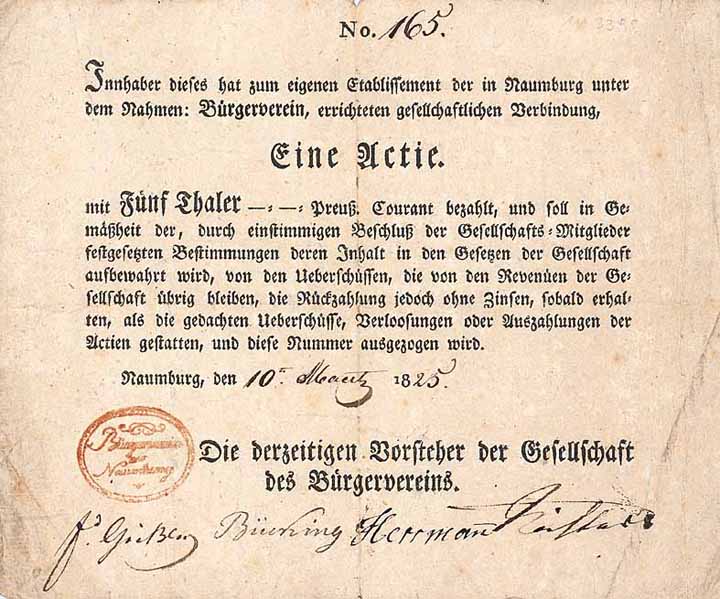 No. 165.
Innhaber dieses hat zum eigenen Etablissement der in Naumburg unter
dem Nahmen: Bürgerverein, errichteten gesellschaftlichen Verbindung,
Eine Actie.
mit Fünf Thaler —⹀—⹀ Preuß. Courant bezahlt, und soll in Ge⹀
mäßheit der, durch einstimmigen Beschluß der Gesellschafts⹀Mitglieder
festgesetzten Bestimmungen deren Inhalt in den Gesetzen der Gesellschaft
aufbewahrt wird, von den Ueberschüssen, die von den Revenüen der Ge⹀
sellschaft übrig bleiben, die Rückzahlung jedoch ohne Zinsen, sobald erhal⹀
ten, als die gedachten Ueberschüsse, Verloosungen oder Auszahlungen der
Actien gestatten, und diese Nummer ausgezogen wird.
Naumburg, den 10. Maertz 1825.
Bürgerverein
zu
Naumburg
Die derzeitigen Vorsteher der Gesellschaft
des Bürgervereins.
Bücking Herrmann